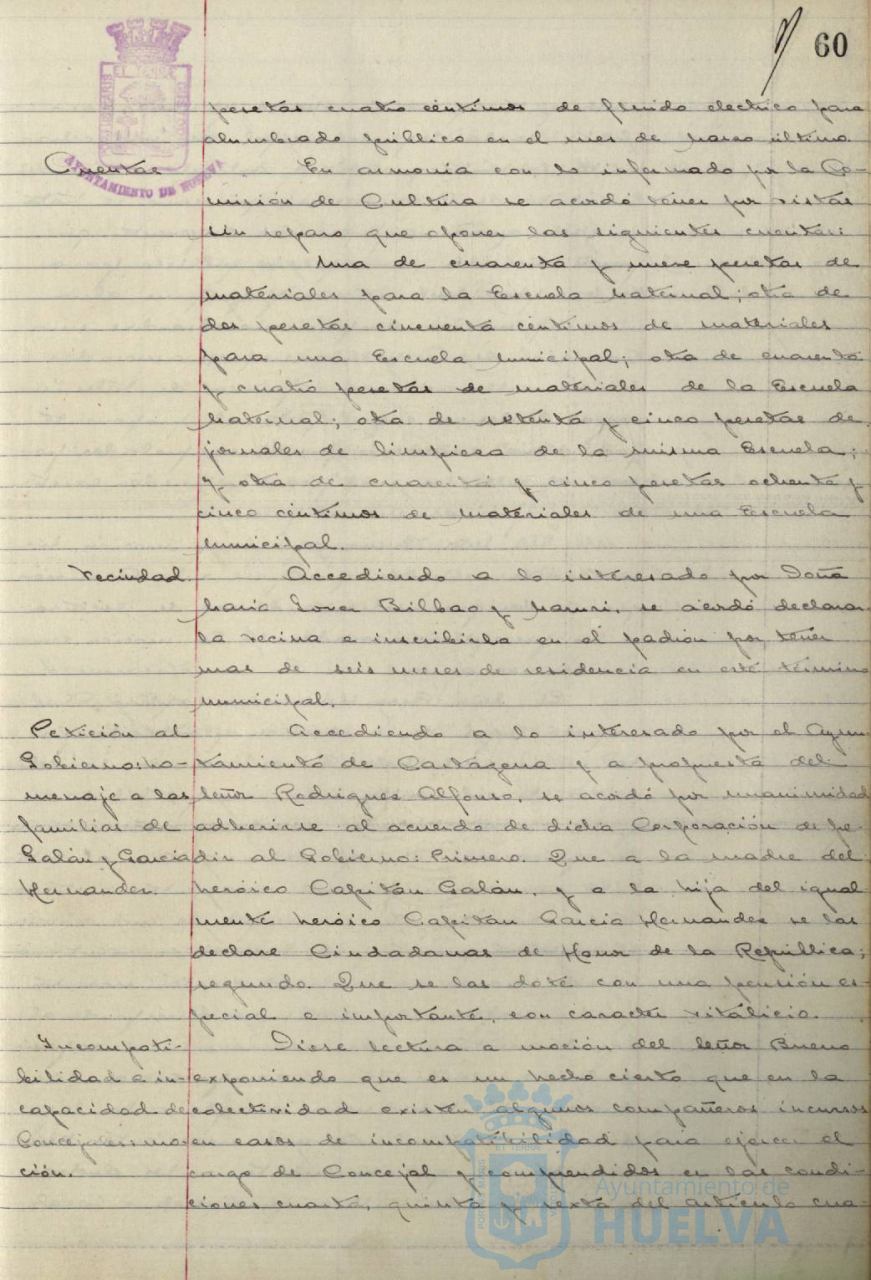 60
EL TERRE
AYUNTAMIENTO DE HUELVA
pesetas cuatro céntimos de fluido electrico para
alumbrado público en el mes de marzo último.
Cuentas En armonía con lo informado por la Co-
misión de Cultura se acordó tener por vistas
sin reparo que oponer las siguientes cuentas:
Una de cuarenta y nueve pesetas de
materiales para la Escuela Maternal; otra de
dos pesetas cincuenta céntimos de materiales
para una Escuela municipal; otra de cuarenta
y cuatro pesetas de materiales de la Escuela
Maternal; otra de setenta y cinco pesetas de
jornales de limpieza de la misma Escuela;
y otra de cuarenta y cinco pesetas ochenta y
cinco céntimos de materiales de una Escuela
municipal.
Vecindad. Accediendo a lo interesado por Doña
María Bilbao y se acordó declarar
la vecina e inscribirla en el padrón por tener
mas de seis meses de residencia en este término
municipal.
Petición al Accediendo a lo interesado por el Ayun
Gobierno: ho- tamiento de Cartagena y a propuesta del
menaje a las Señor Rodriguez Alfonso, se acordó por unanimidad
familias de adherirse al acuerdo de dicha Corporación de pe-
Galán y García dir al Gobierno: Primero. Que a la madre del
Hernandez. heróico Capitán Galán, y a la hija del igual
mente heróico Capitán García Hernandez se las
declare Ciudadanas de Honor de la República;
segundo. Que se las dote con una pensión es-
pecial e importante, con caracter vitalicio.
Incompati- Diose lectura a moción del Señor Bueno
bilidad e in- exponiendo que es un hecho cierto que en la
capacidad de colectividad existen algunos compañeros incursos
Concejales: mo- en casos de incompatibilidad para ejercer el
ción. cargo de Concejal y comprendidos en las condi-
ciones cuarta, quinta y sexta del artículo cua-
Ayuntamiento de
HUELVA